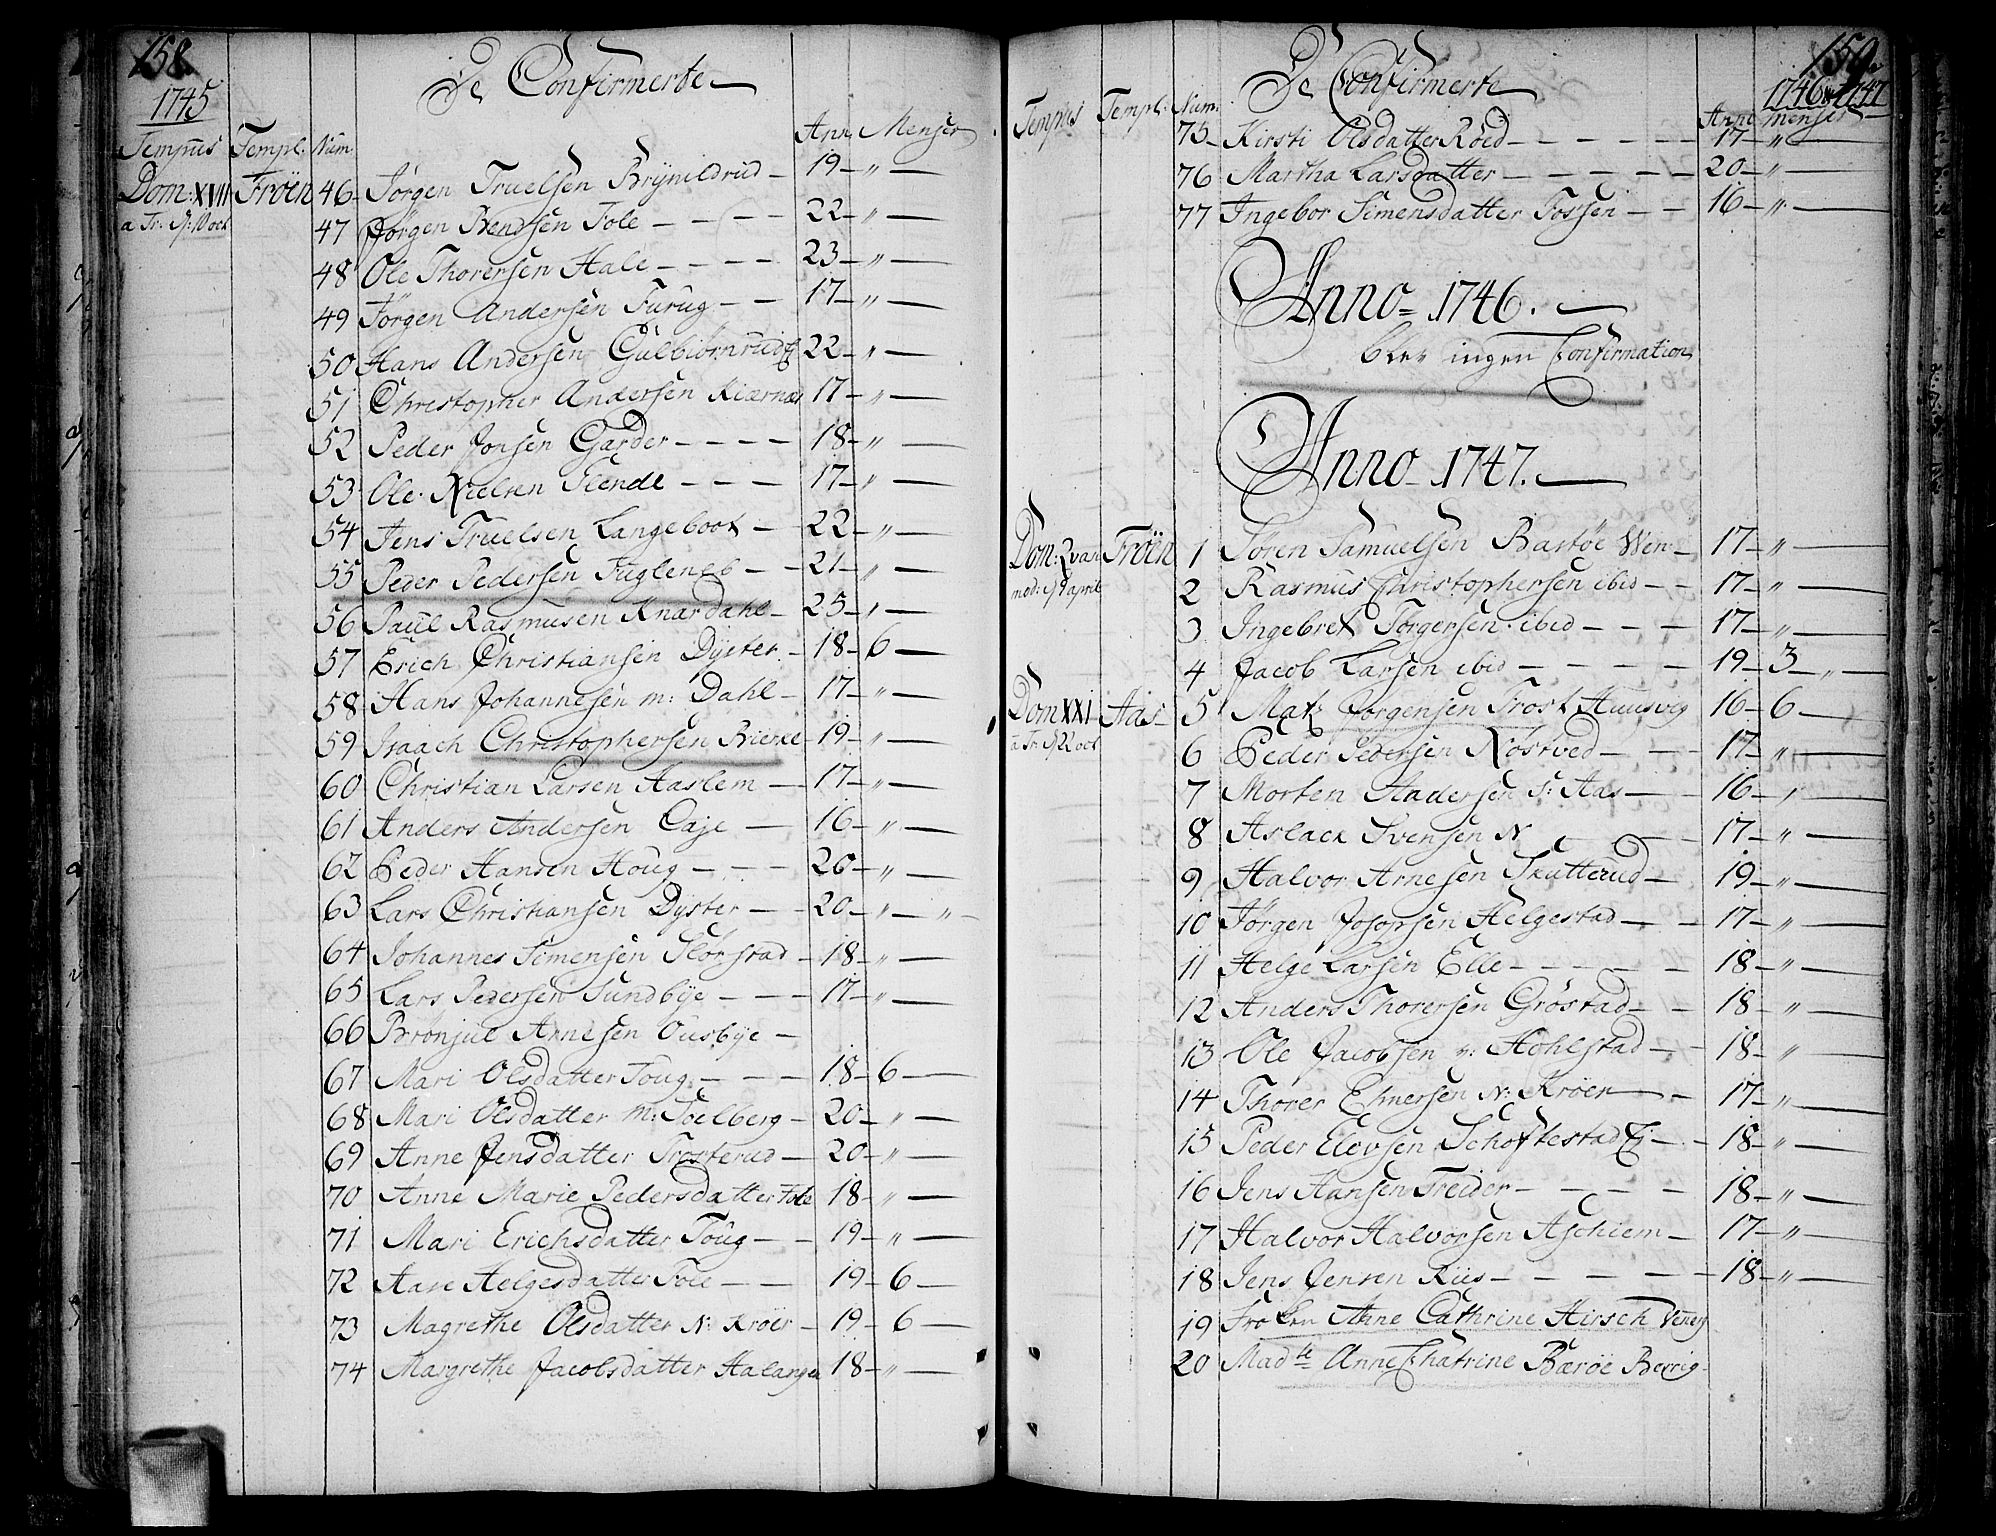 158.
1745
De Confirmerte
Tempus Templ: Num Ann Menser
Dom: XVII Fröen 46 Jörgen Truelsen Brynildrud 19 "
a Tr. 47 Jörgen Bendsen Tole 22 "
48 Ole Thorersen Hale 23 "
49 Jörgen Andersen Furug 17 "
50 Hans Andersen Gulbiörnrud 22 "
51 Christopher Andersen Kiærnæs 17 "
52 Peder Jonsen Garder 18 "
53 Ole Nielsen Tiende 17 "
54 Jens Truelsen Langeboot 22 "
55 Peder Pedersen Fugleneb 21 "
56 Paul Rasmusen Knardahl 25 "
57 Erich Christiansen Dyster 18 6
58 Hans Johannesen m: Dahl 17 "
59 Isaach Christophersen Bierke 19 "
60 Christian Larsen Aaslem 17 "
61 Anders Andersen Caje 16 "
62 Peder Hansen Houg 20 "
63 Lars Christiansen Dyster 20 " "
64 Johannes Simensen Slorstad 18 "
65 Lars Pedersen Sundbye 17 "
66 Bronjul Arnesen Ousbye
67 Mari Olsdatter Toug 18 6
68 Mari Olsdatter m: Toelberg 20 "
69 Anne Jensdatter Trosterud 20 "
70 Anne Marie Pedersdatter Tole 18 "
71 Mari Erichsdatter Toug 19 "
72 Aase Helgesdatter Tole 19 6
73 Magrethe Olsdatter N: Kröer 19 6
74 Margrethe Jacobsdatter Halangen 18 "
159.
1746 1747
De Confirmerte
Tempus Templ: Num. Anni menses
75 Kirsti Olsdatter Röed 17 "
76 Martha Larsdatter 20 "
77 Ingebor Simensdatter Fossen 16 "
Anno 1746.
blev ingen Confirmation
Anno 1747.
Dom: Qvasi Fröen 1 Sören Samuelsen Bastöe Wen 17 "
mod: 9 april 2 Rasmus Christophersen ibid 17 "
3 Ingebret Törgersen ibid 17 "
4 Jacob Larsen ibid 19 3 "
Dom XXI Aas 5 Mat: Jörgensen Trost Huusvig 16 6
a Tr. 6 Peder Pedersen Röstved 17 "
7 Morten Andersen S: Aas 16 "
8 Aslack Svensen N 17 "
9 Halvor Arnesen Skutterud 19 "
10 Jörgen Josopsen Helgestad 17 "
11 Helge Larsen Elle 18 "
12 Anders Thorersen Gröstad 18 "
13 Ole Jacobsen n: Hohlstad 18 "
14 Thorer Elmersen N: Kröer 17 "
15 Peder Elevsen Schoftestad Ej 18 "
16 Jens Hansen Treider 18 "
17 Halvor Halvorsen Aschiem 17 "
18 Jens Jensen Riis 18 "
19 Frö Lrn Anne Cathrine Hirsch Venersb
20 Mad le Anne Chatrine Bæröe Bevrig